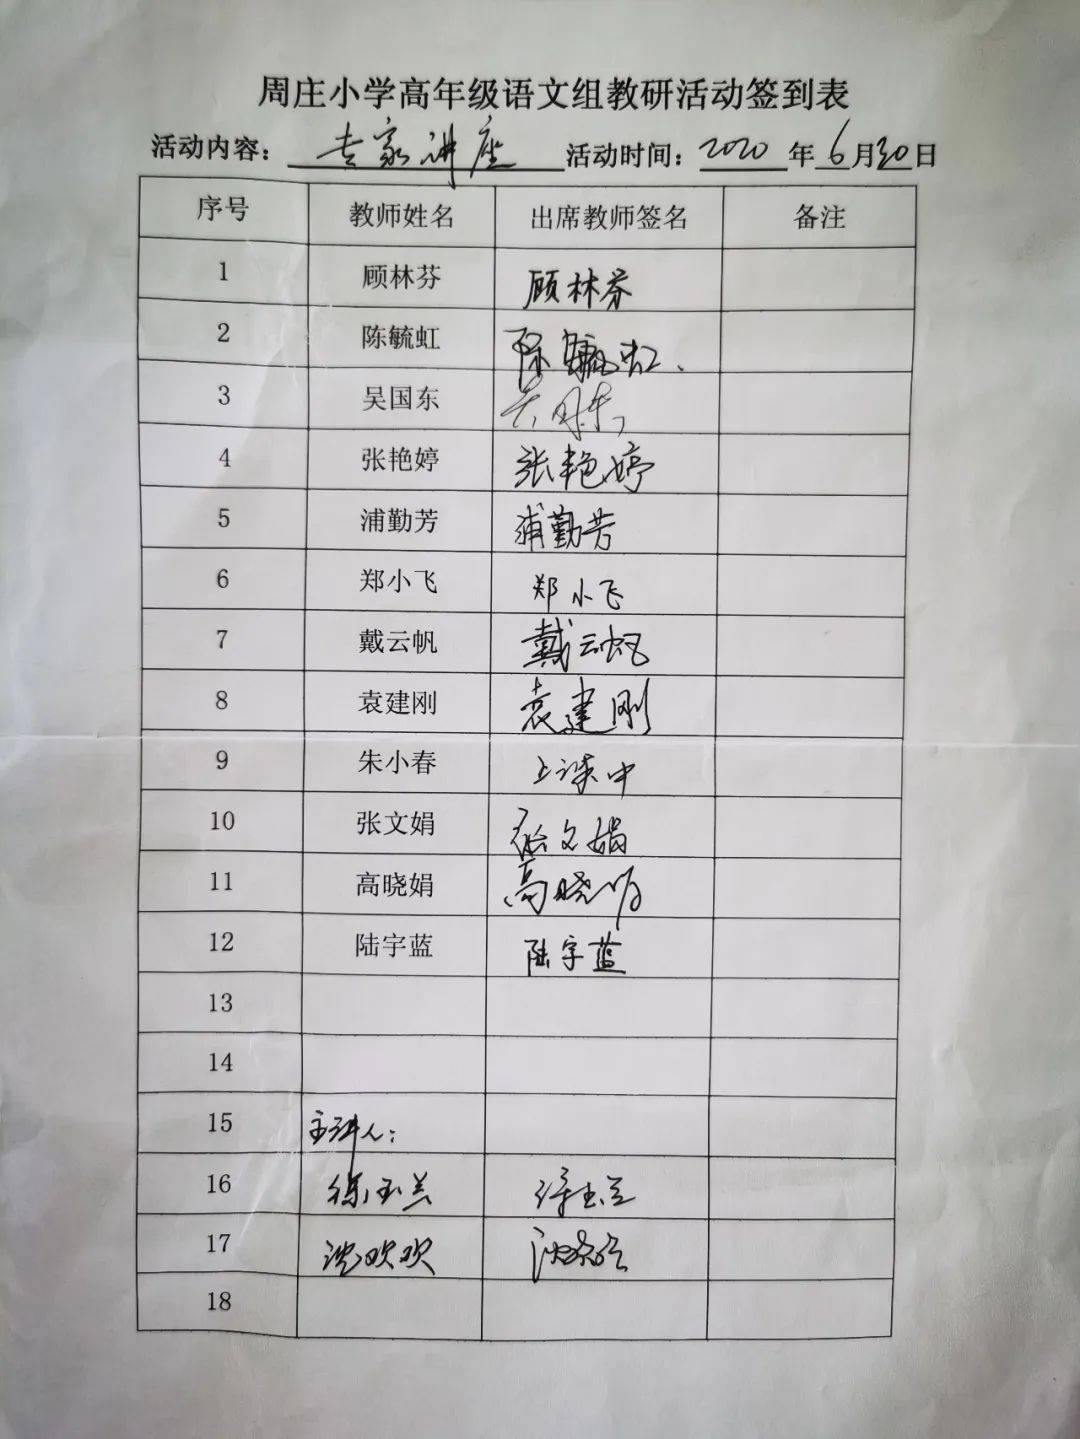 周庄小学高年级语文组教研活动签到表
活动内容：专家讲座 活动时间：2020年6月30日
序号 教师姓名 出席教师签名 备注
1 顾林芬 顾林芬
2 陈毓虹 陈毓虹.
3 吴国东 吴国东
4 张艳婷 张艳婷
5 浦勤芳 浦勤芳
6 郑小飞 郑小飞
7 戴云帆 戴云帆
8 袁建刚 袁建刚
9 朱小春 上课中
10 张文娟 张文娟
11 高晓娟 高晓娟
12 陆宇蓝 陆宇蓝
13
14
15 主讲人：
16 徐玉兰 徐玉兰
17 沈欢欢
18